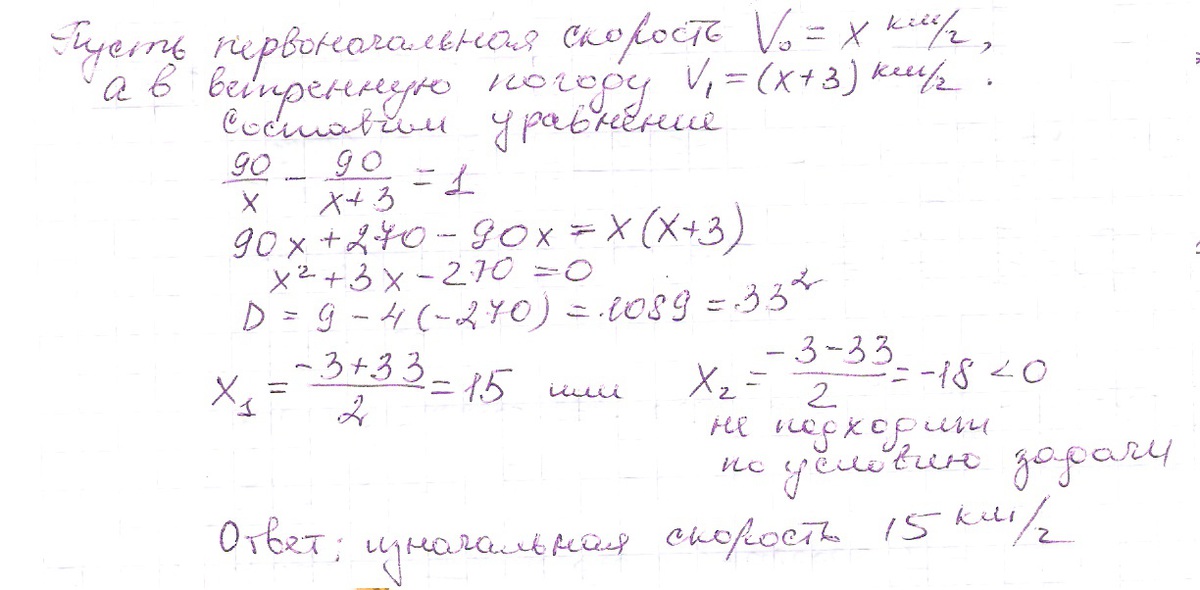 Пусть первоначальная скорость V₀ = x км/г,
а в ветренную погоду V₁ = (x+3) км/г.
Составим уравнение
90/x − 90/(x+3) = 1
90x + 270 − 90x = x(x+3)
x² + 3x − 270 = 0
D = 9 − 4(−270) = 1089 = 33²
x₁ = (−3+33)/2 = 15 или x₂ = (−3−33)/2 = −18 < 0
не подходит
по условию задачи
Ответ: изначальная скорость 15 км/г